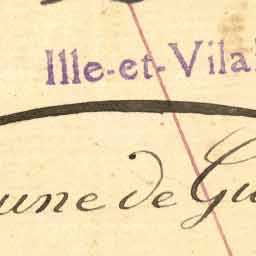 Ille-et-Vila
une de Gu